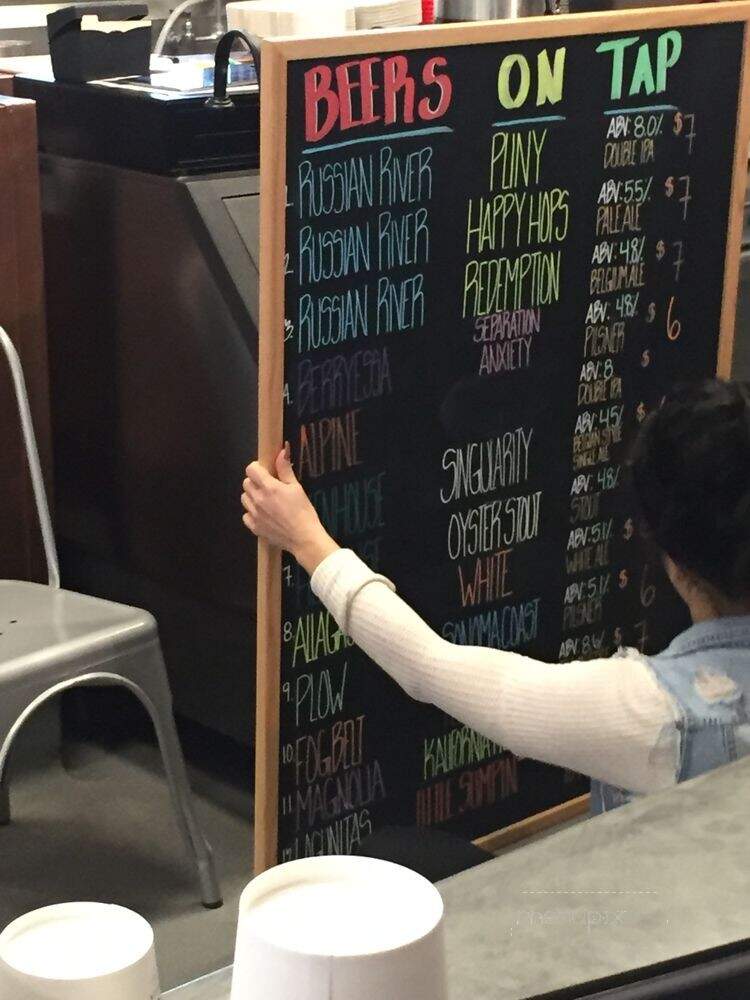 BEERS ON TAP
1. RUSSIAN RIVER PLINY ABV: 8.0% $7
DOUBLE IPA
2 RUSSIAN RIVER HAPPY HOPS ABV: 5.5% $7
PALE ALE
3. RUSSIAN RIVER REDEMPTION ABV: 4.8% $7
BELGIUM ALE
4. BERRYESSA SEPARATION ANXIETY ABV: 4.8% $6
PILSNER
ALPINE ABV: 8 $
DOUBLE IPA
ENHOUSE SINGULARITY ABV: 4.5% $
BELGIAN STYLE
SINGLE ALE
7. OYSTER STOUT ABV: 4.8%
STOUT
8. ALLAGA WHITE ABV: 5.1% $
WHITE ALE
9. PLOW SONOMA COAST ABV: 5.1% $6
PILSNER
10. FOGBELT ABV: 8.6% $7
11. MAGNOLIA KALIFORNIA
12. LAGUNITAS LITTL SUMPIN
menupix